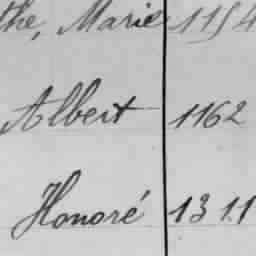 the, Marie 1154
Albert 1162
Honoré 1311